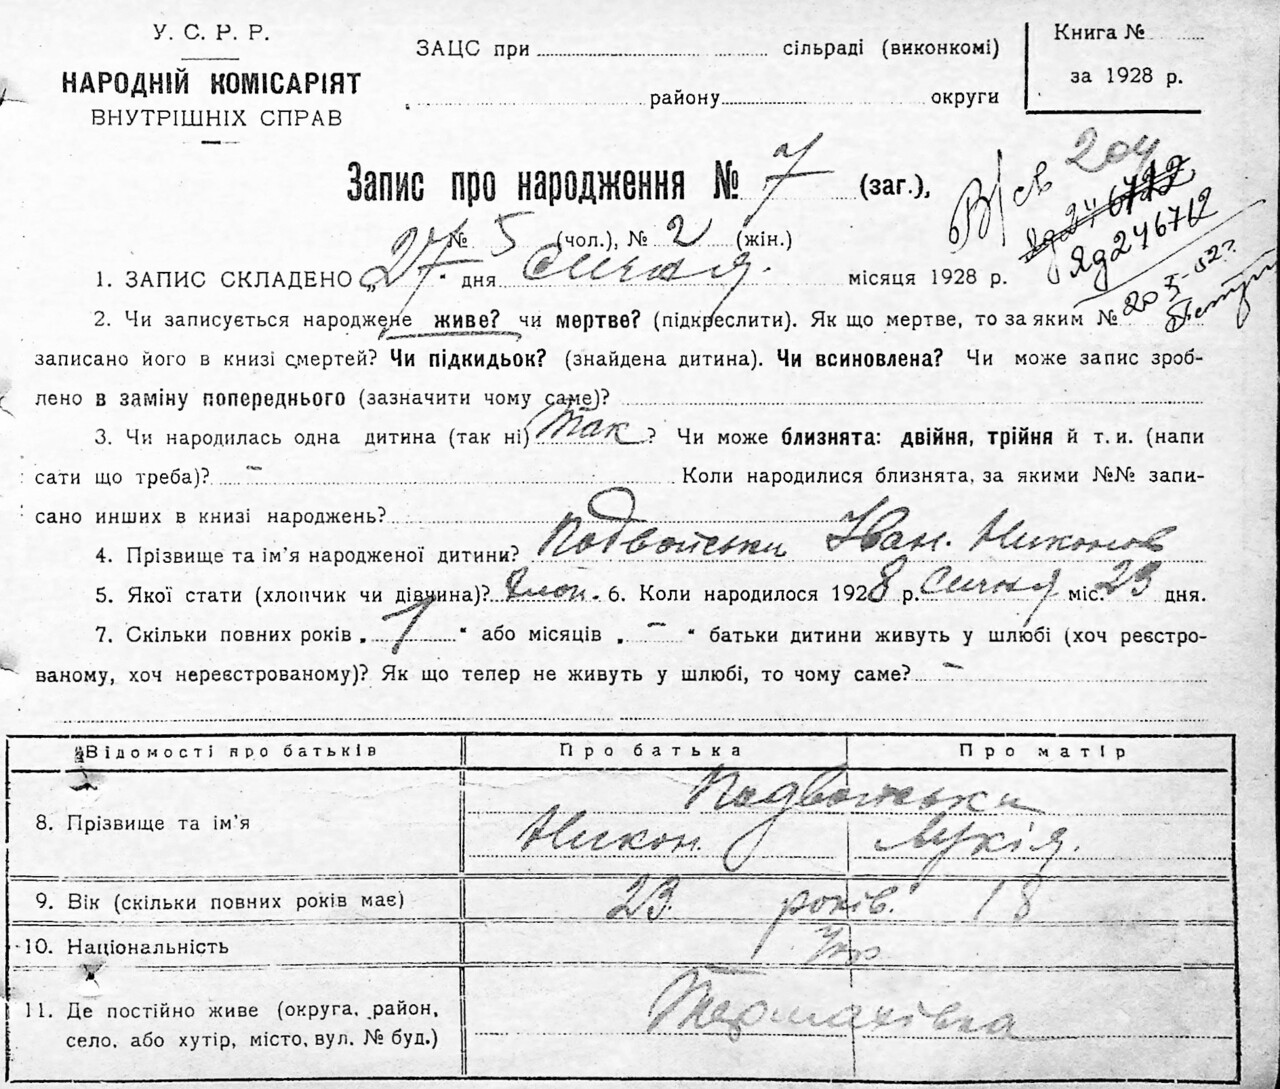 У. С. Р. Р.
НАРОДНІЙ КОМІСАРІЯТ
ВНУТРІШНІХ СПРАВ
ЗАЦС при сільраді (виконкомі)
району округи
Книга №
за 1928 р.
Запис про народження № 7 (заг.),
204
В/св
Яд246712
№ 5 (чол.), № 2 (жін.)
1. ЗАПИС СКЛАДЕНО „27" дня Січня. місяця 1928 р.
2. Чи записується народжене живе? чи мертве? (підкреслити). Як що мертве, то за яким №
записано його в книзі смертей? Чи підкидьок? (знайдена дитина). Чи всиновлена? Чи може запис зроб-
лено в заміну попереднього (зазначити чому саме)?
3. Чи народилась одна дитина (так ні) Так? Чи може близнята: двійня, трійня й т. и. (напи
сати що треба)? – Коли народилися близнята, за якими №№ запи-
сано инших в книзі народжень?
4. Прізвище та ім'я народженої дитини? Подвойськи Іван. Никонов
5. Якої стати (хлопчик чи дівчина)? хлоп. 6. Коли народилося 1928 р. Січня міс. 23 дня.
7. Скільки повних років „1" або місяців „–" батьки дитини живуть у шлюбі (хоч реєстро-
ваному, хоч нереєстрованому)? Як що тепер не живуть у шлюбі, то чому саме? –
Відомості про батьків Про батька Про матір
8. Прізвище та ім'я Подвойськи
Никон. Лукія.
9. Вік (скільки повних років має) 23 років. 18
10. Національність Укр
11. Де постійно живе (округа, район,
село, або хутір, місто, вул. № буд.) Термахівка